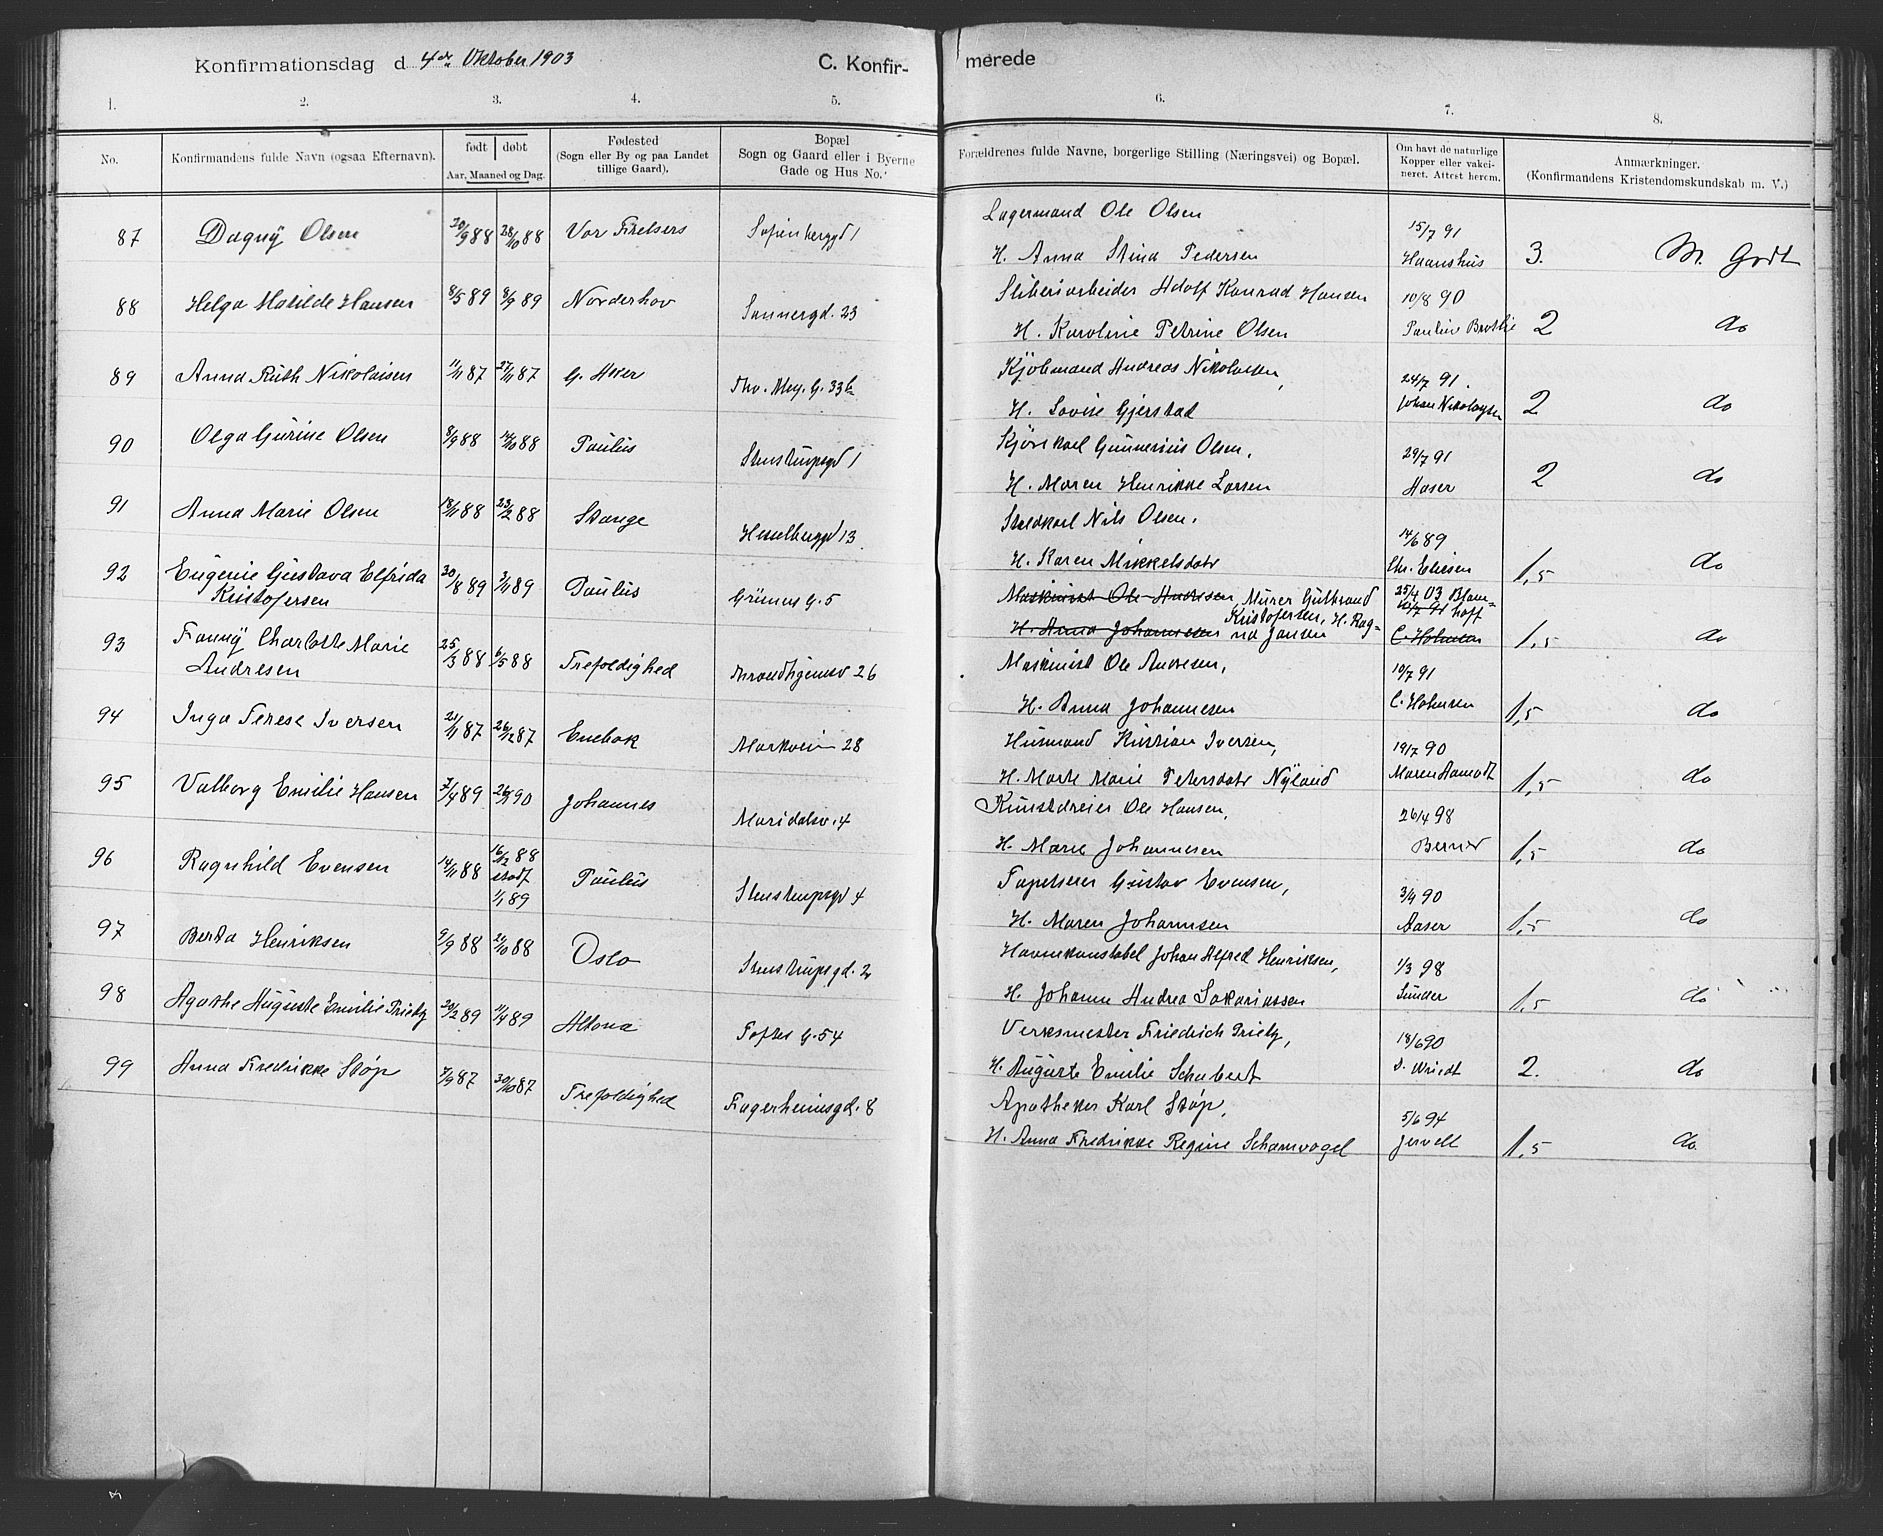 Konfirmationsdag d 4de Oktober 1903 C. Konfir- merede
1. 2. 3. 4. 5. 6. 7. 8.
No. Konfirmandens fulde Navn (ogsaa Efternavn). født døbt Aar, Maaned og Dag. Fødested (Sogn eller By og paa Landet tillige Gaard). Bopæl Sogn og Gaard eller i Byerne Gade og Hus No. Forældrenes fulde Navne, borgerlige Stilling (Næringsvei) og Bopæl. Om havt de naturlige Kopper eller vakcineret. Attest herom. Anmærkninger. (Konfirmandens Kristendomskundskab m. V.)
87 Dagny Olsen 20/9 88 28/10 88 Vor Frelsers Sofienberggd 1 Lagermand Ole Olsen 15/7 91
H. Anna Stina Pedersen Haanshus 3. M. Godt
88 Helga Matilde Hansen 8/5 89 8/9 89 Norderhov Sannergd. 23 Sliberiarbeider Adolf Konrad Hansen 10/8 90
H. Karoline Petrine Olsen Paulin 2 do
89 Anna Ruth Nikolaisen 11/11 87 27/11 87 G. Aker Thv. Mey. G. 33b Kjøbmand Andreas Nikolaisen, 24/7 91.
H. Lovise Gjerstad Johan Nikolaysen 2 do
90 Olga Gurine Olsen 8/9 88 14/10 88 Paulus Stenstrupsgd 1 Kjørekarl Gunnerius Olsen, 29/7 91
H. Maren Henrikke Larsen Aaser 2 do
91 Anna Marie Olsen 18/11 88 23/2 88 Stange Hesselberggd 13 Stedkarl Nils Olsen, 14/6 89
H. Karen Mikkelsdatr Chr. Eliesen 1,5 do
92 Eugenie Gustava Elfrida 30/8 89 3/11 89 Paulus Grüners G. 5 Maskinist Ole Andresen, Murer Gulbrand 25/4 03 Blum=
Kristofersen H. Anna Johannesen Kristofersen, H. Rag= na Jansen 10/7 91 hoff C. Holmsen 1,5 do
93 Fanny Charlotte Marie 25/3 88 6/5 88 Trefoldighed Throndhjemsv 26 Maskinist Ole Andresen, 10/7 91
Andresen H. Anna Johannesen C. Holmsen 1,5 do
94 Inga Terese Iversen 21/11 87 26/12 87 Enebak Markvein 28 Husmand Kristian Iversen, 19/7 90
H. Marte Marie Petersdatr Nyland Maren Aamodt 1,5 do
95 Valborg Emilie Hansen 7/4 89 26/1 90 Johannes Maridalsv. 4 Kunstdreier Ole Hansen, 26/4 98
H. Marie Johannesen Berner 1,5 do
96 Ragnhild Evensen 14/11 88 16/12 88 stadf 1/1 89 Paulus Stenstrupsgd 4 Tapetserer Gustav Evensen, 3/9 90
H. Maren Johannesen Aaser 1,5 do
97 Berta Henriksen 9/9 88 21/10 88 Oslo Stenstrupsgd. 2 Havnekonstabel Johan Alfred Henriksen, 1/3 98
H. Johanne Andrea Sakariassen Sunder 1,5 do
98 Agathe Auguste Emilie Priety 20/2 89 11/4 89 Altona Toftes G. 54 Verksmester Friedrich Priety, 18/6 90
H. Auguste Emilie Schubert D. Wriedt 2. do
99 Anna Fredrikke Støp 7/9 87 30/10 87 Trefoldighed Fagerheimsgd. 8 Apotheker Karl Støp, 5/6 94
H. Anna Fredrikke Regine Schamvogel Jervell 1,5 do.